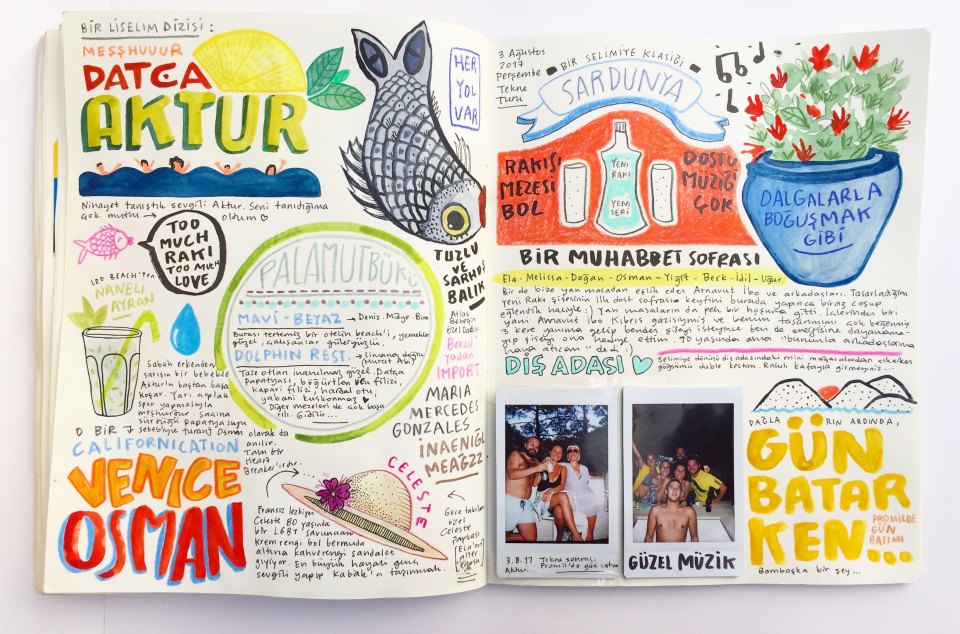 BİR LİSELİM DİZİSİ :
MEŞŞHUUUR
DATÇA
AKTUR
Nihayet tanıştık sevgili Aktur. Seni tanıdığıma
çok mutlu → oldum
TOO
MUCH
RAKI
TOO MUCH
LOVE
LEO BEACH'ten
NANELİ
AYRAN
Sabah erkenden
sarışın bir bebekle
Aktur'u baştan başa
koşar. Yarı çıplak
spor yapmasıyla
meşhurdur. Saçına
sürdüğü papatya suyu
sebebiyle turanj Osman
olarak da
anılır.
Tam bir
Heart
Breaker'dır...
O BİR
CALIFORNICATION
VENICE
OSMAN
HER
YOL
VAR
PALAMUTBÜKÜ
MAVİ-BEYAZ → Deniz. Müge. Bira
Burası tertemiz bir otelin beach'i, yemekler
güzel, çalışanlar güleryüzlü.
DOLPHIN REST. → Limanın doğusu
(Murat Abi)
Taze otları inanılmaz güzel. Datça
Papatyası, böğürtlen filizi,
kapari filizi, hardal otu
yabani kuşkonmaz
Diğer mezeleri de çok başa-
rılı. Gidilir...
TUZLU
VE
SARHOŞ
BALIK
Atlas
Beyen
özel ödülü
Brezil
yadan
IMPORT
MARIA
MERCEDES
GONZALES
INAENIGL
MEAGZZ
CELESTE
Fransız lezbiyen
Celeste 80 yaşında
bir LGBT savunucusu
krem rengi bol bermuda
altına kahverengi sandalet
giyiyor. En büyük hayali genç
sevgili yapıp Kabak'a taşınmak.
Gece takılan
özel
Celeste
şapkası
3 Ağustos
2017
Perşembe
Tekne
Turu
BİR SELİMİYE KLASİĞİ
SARDUNYA
RAKISI
MEZESİ
BOL
YENİ
RAKI
YENİ
SERİ
DOSTU
MÜZİĞİ
ÇOK
DALGALARLA
BOĞUŞMAK
GİBİ
BİR MUHABBET SOFRASI
Ela - Melissa - Doğan - Osman - Yiğit - Berk - İdil - Uğur
Bir de bize yan masadan eşlik eden Arnavut İbo ve arkadaşları. Tasarladığım
yeni Rakı şişesinin ilk dost sofrası keyfini burada yapınca biraz coşup
eğlendik haliyle :) Yan masaların da pek bir hoşuna gitti. İçlerinden biri
yani Arnavut İbo Kıbrıs gazisiymiş ve benim tasarımımı çok beğenmiş
3 kere yanıma gelip benden şişeyi isteyince ben de enerjisine dayanama-
yıp şişeyi ona hediye ettim. 70 yaşında ama "bununla arkadaşlarıma
hava atıcam" dedi :)
DİŞ ADASI
Selimiye dönüşü diş adasındaki mini mağaralardan çıkarken
göğsümü duble kestim. Rakılı kafayla girmeyiniz...
DAĞLARIN ARDINDA,
GÜN
BATAR
KEN...
PROMİLDE
GÜN
BATIMI
Bambaşka bir şey...
3.8.17 Tekne sonrası
Aktur. Promil'de gün batımı
GÜZEL MÜZİK